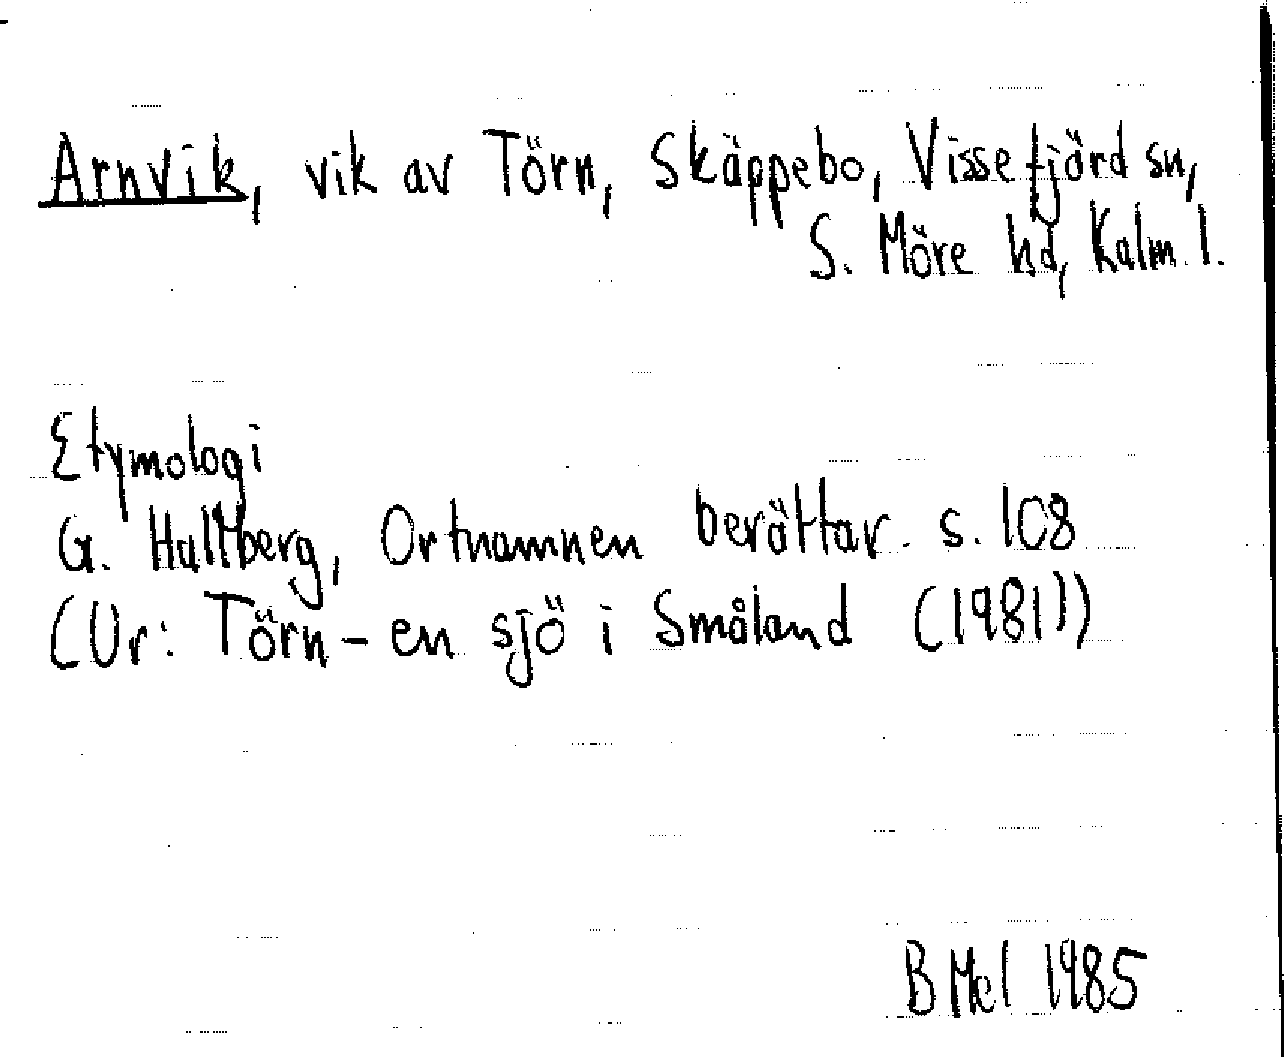 Arnvik, vik av Törn, Skäppebo, Vissefjärd sn,
S. Möre hd, Kalm. l.
Etymologi
G. Hallberg, Ortnamnen berättar. s. 108
(Ur: Törn - en sjö i Småland (1981))
B Mel 1985